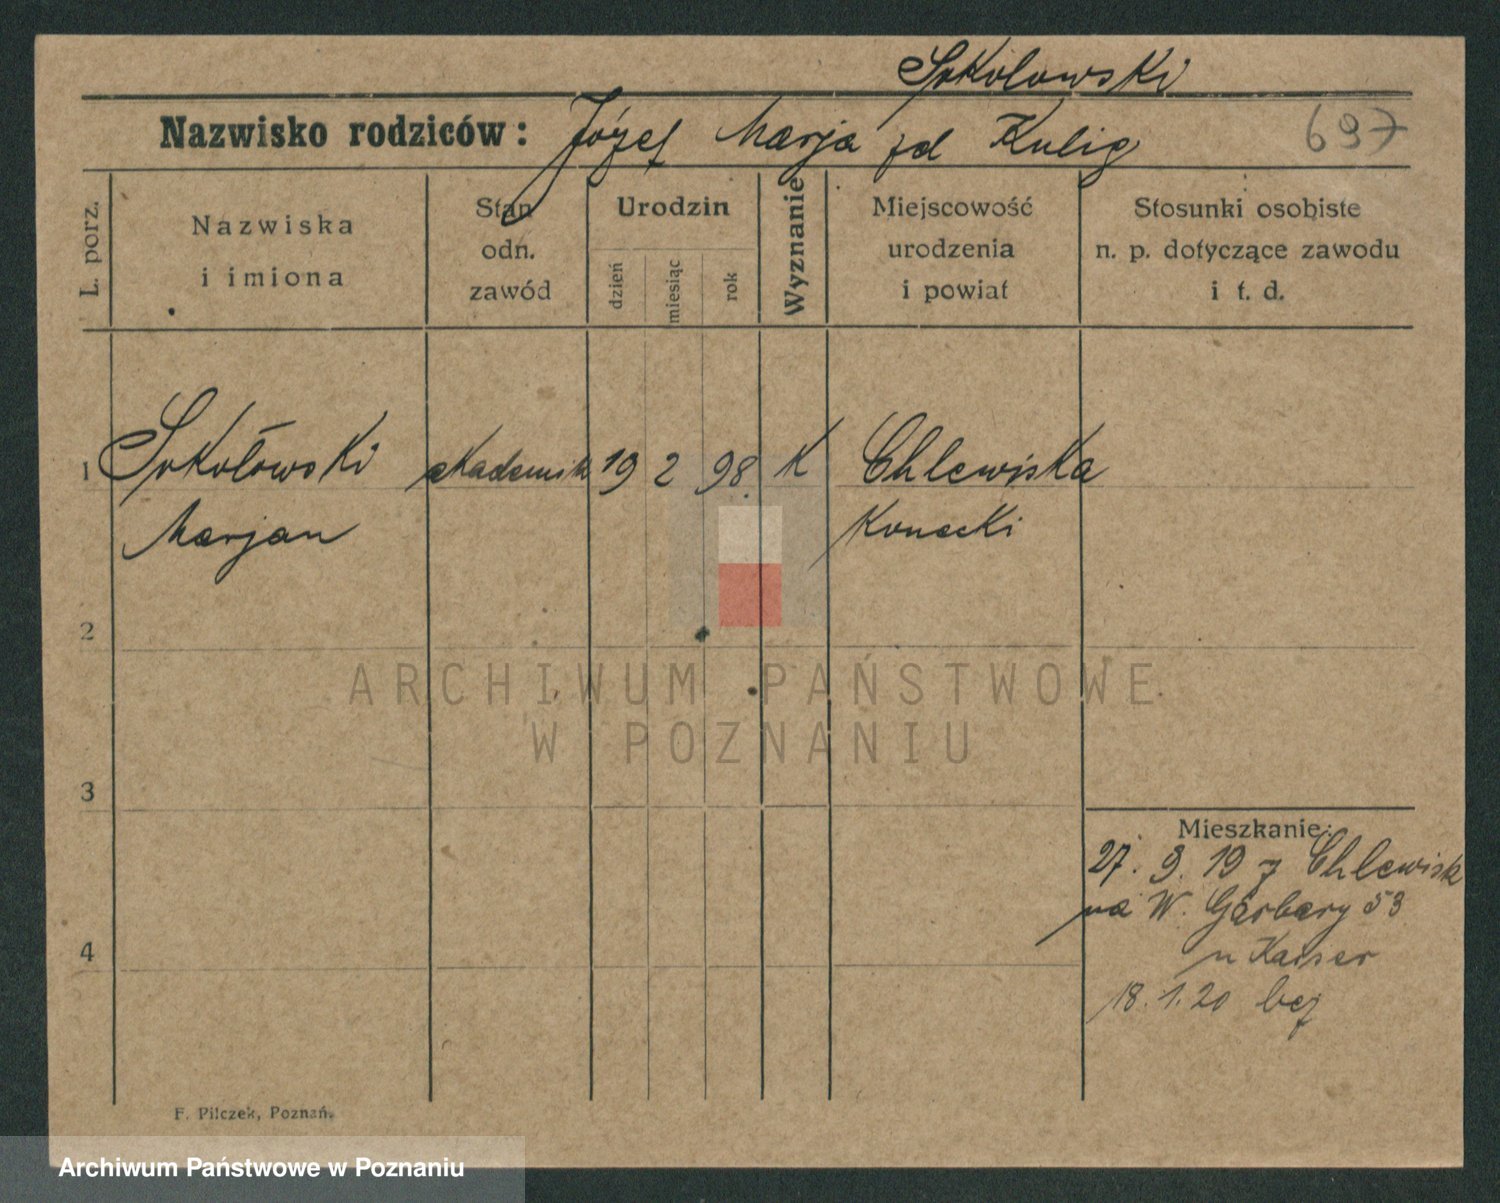 Sokolowski
Nazwisko rodziców: Józef Marja zd Kulig
697
L. porz.
Nazwiska
i imiona
Stan
odn.
zawód
Urodzin
dzień
miesiąc
rok
Wyznanie
Miejscowość
urodzenia
i powiat
Stosunki osobiste
n. p. dotyczące zawodu
i t. d.
1 Sokołowski akademik 19 2 98. K Chlewiska
Marjan Konecki
2
ARCHIWUM PAŃSTWOWE
W POZNANIU
3
Mieszkanie:
27. 9. 19 z Chlewisk
na W. Garbary 53
4
u Kaiser
18.1.20
F. Pilczek, Poznań.
Archiwum Państwowe w Poznaniu